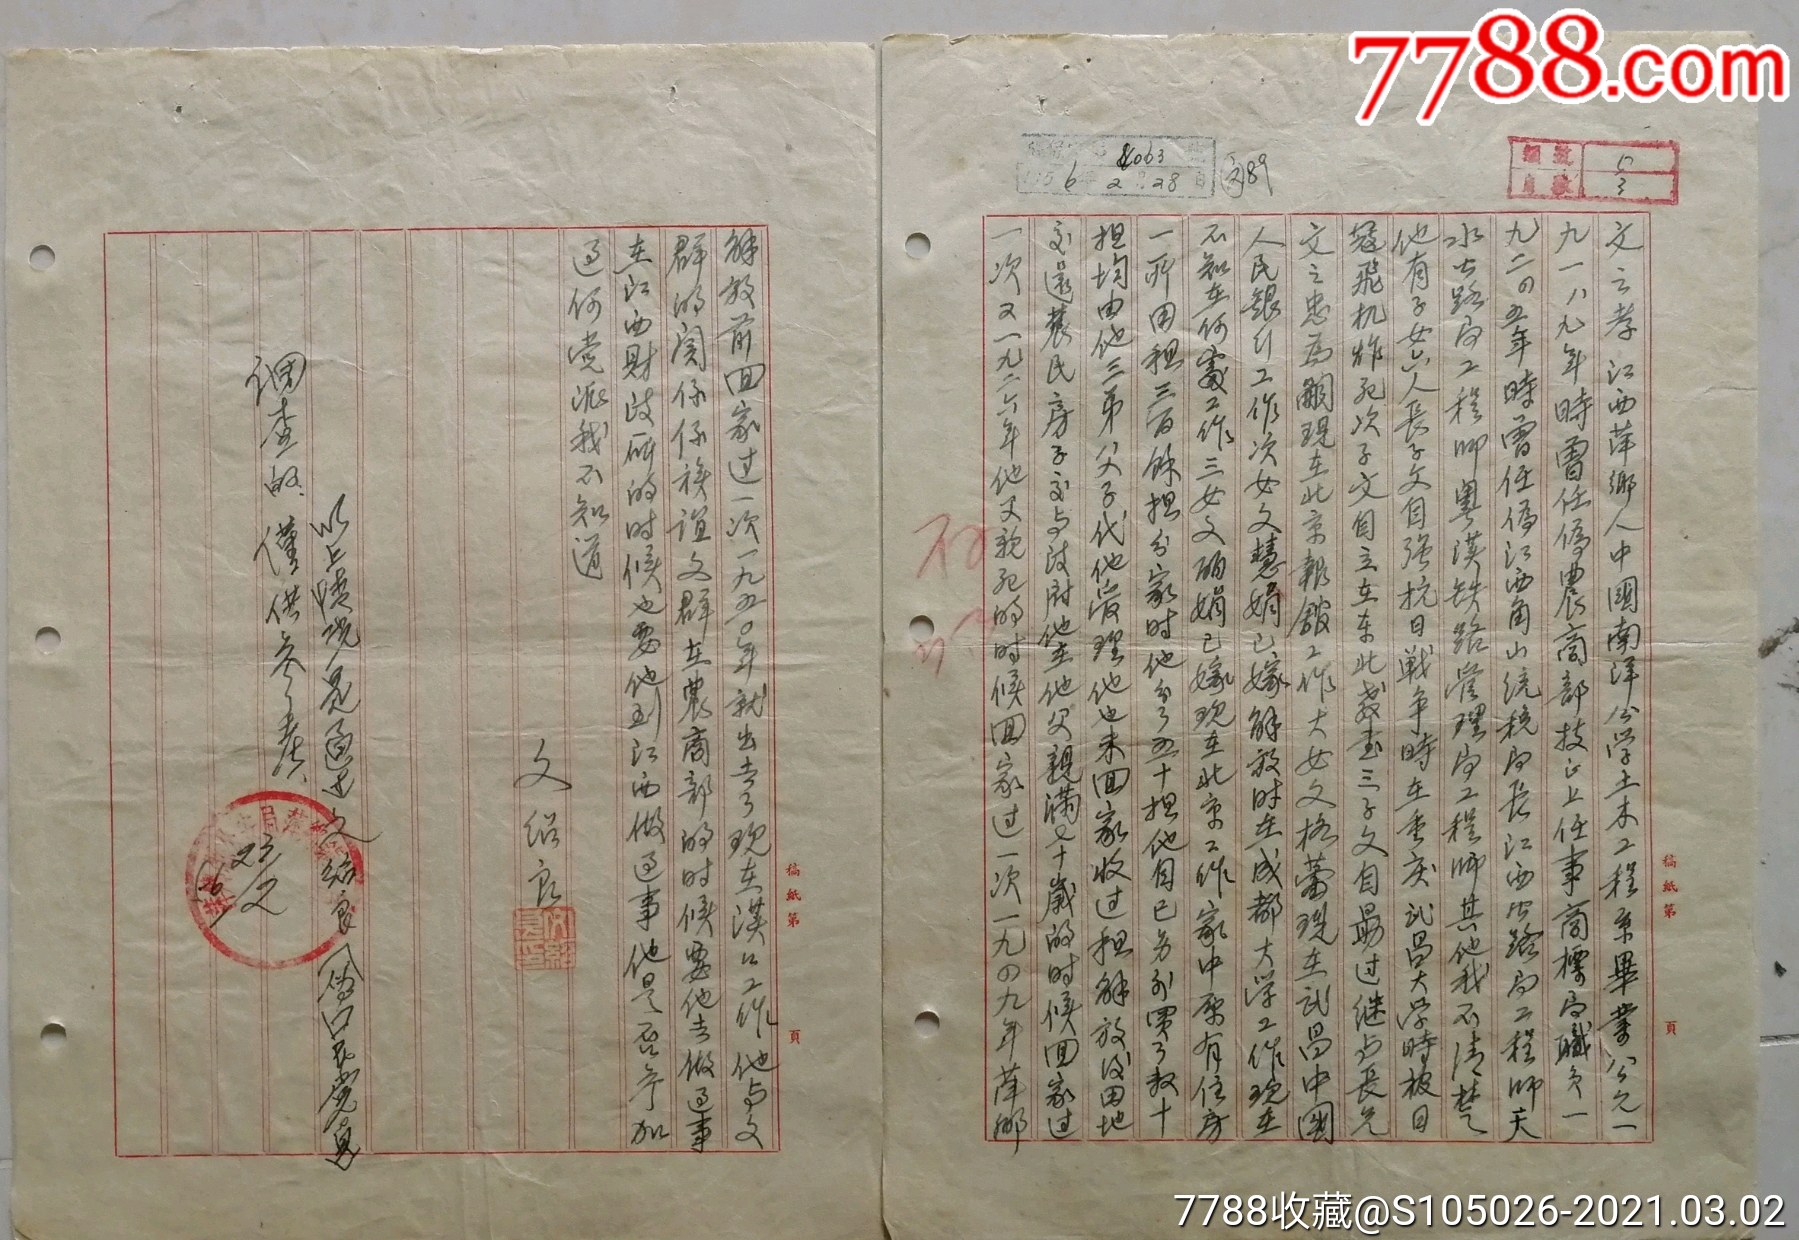 7788.com
编号
页数
5
3
8063
1956年2月28日
文89
文云孝江西萍鄉人中國南洋公学土木工程系畢業公元一
九一八九年時曾任偽農商部技正上任事商標局職員一
九二四五年時曾任偽江西角山統税局長江西公路局工程師天
水公路局工程師粤漢铁路管理局工程师其他我不清楚
他有子女六人長子文自强抗日戰争時在重庆武昌大学時被日
寇飛机炸死次子文自立在东北教書三子文自勗过继与長兄
文之忠為嗣現在北京報舘工作大女文格蘭現在武昌中國
人民銀行工作次女文慧娟已嫁解放时在成都大学工作現在
不知在何處工作三女文硕娟已嫁现在北京工作家中原有住房
一所田租三百餘担分家时他分了五十担他自己另外買了数十
担均由他三弟父子代他管理他也未回家收过租解放後田地
交還農民房子交与政府他在他父親滿七十歲的时候回家过
一次又一九二六年他父親死的时候回家过一次一九四九年萍鄉
解放前回家过一次一九五〇年就出去了现在漢口工作他与文
群的関係係族誼文群在農商部的时候要他去做过事
在江西財政厛的时候也要他到江西做过事他是否参加
过何党派我不知道
文绍良
以上情况是通过文绍良(偽国民党員)
调查的,僅供参考
稿紙第
頁
稿紙第
頁
7788收藏@S105026-2021.03.02